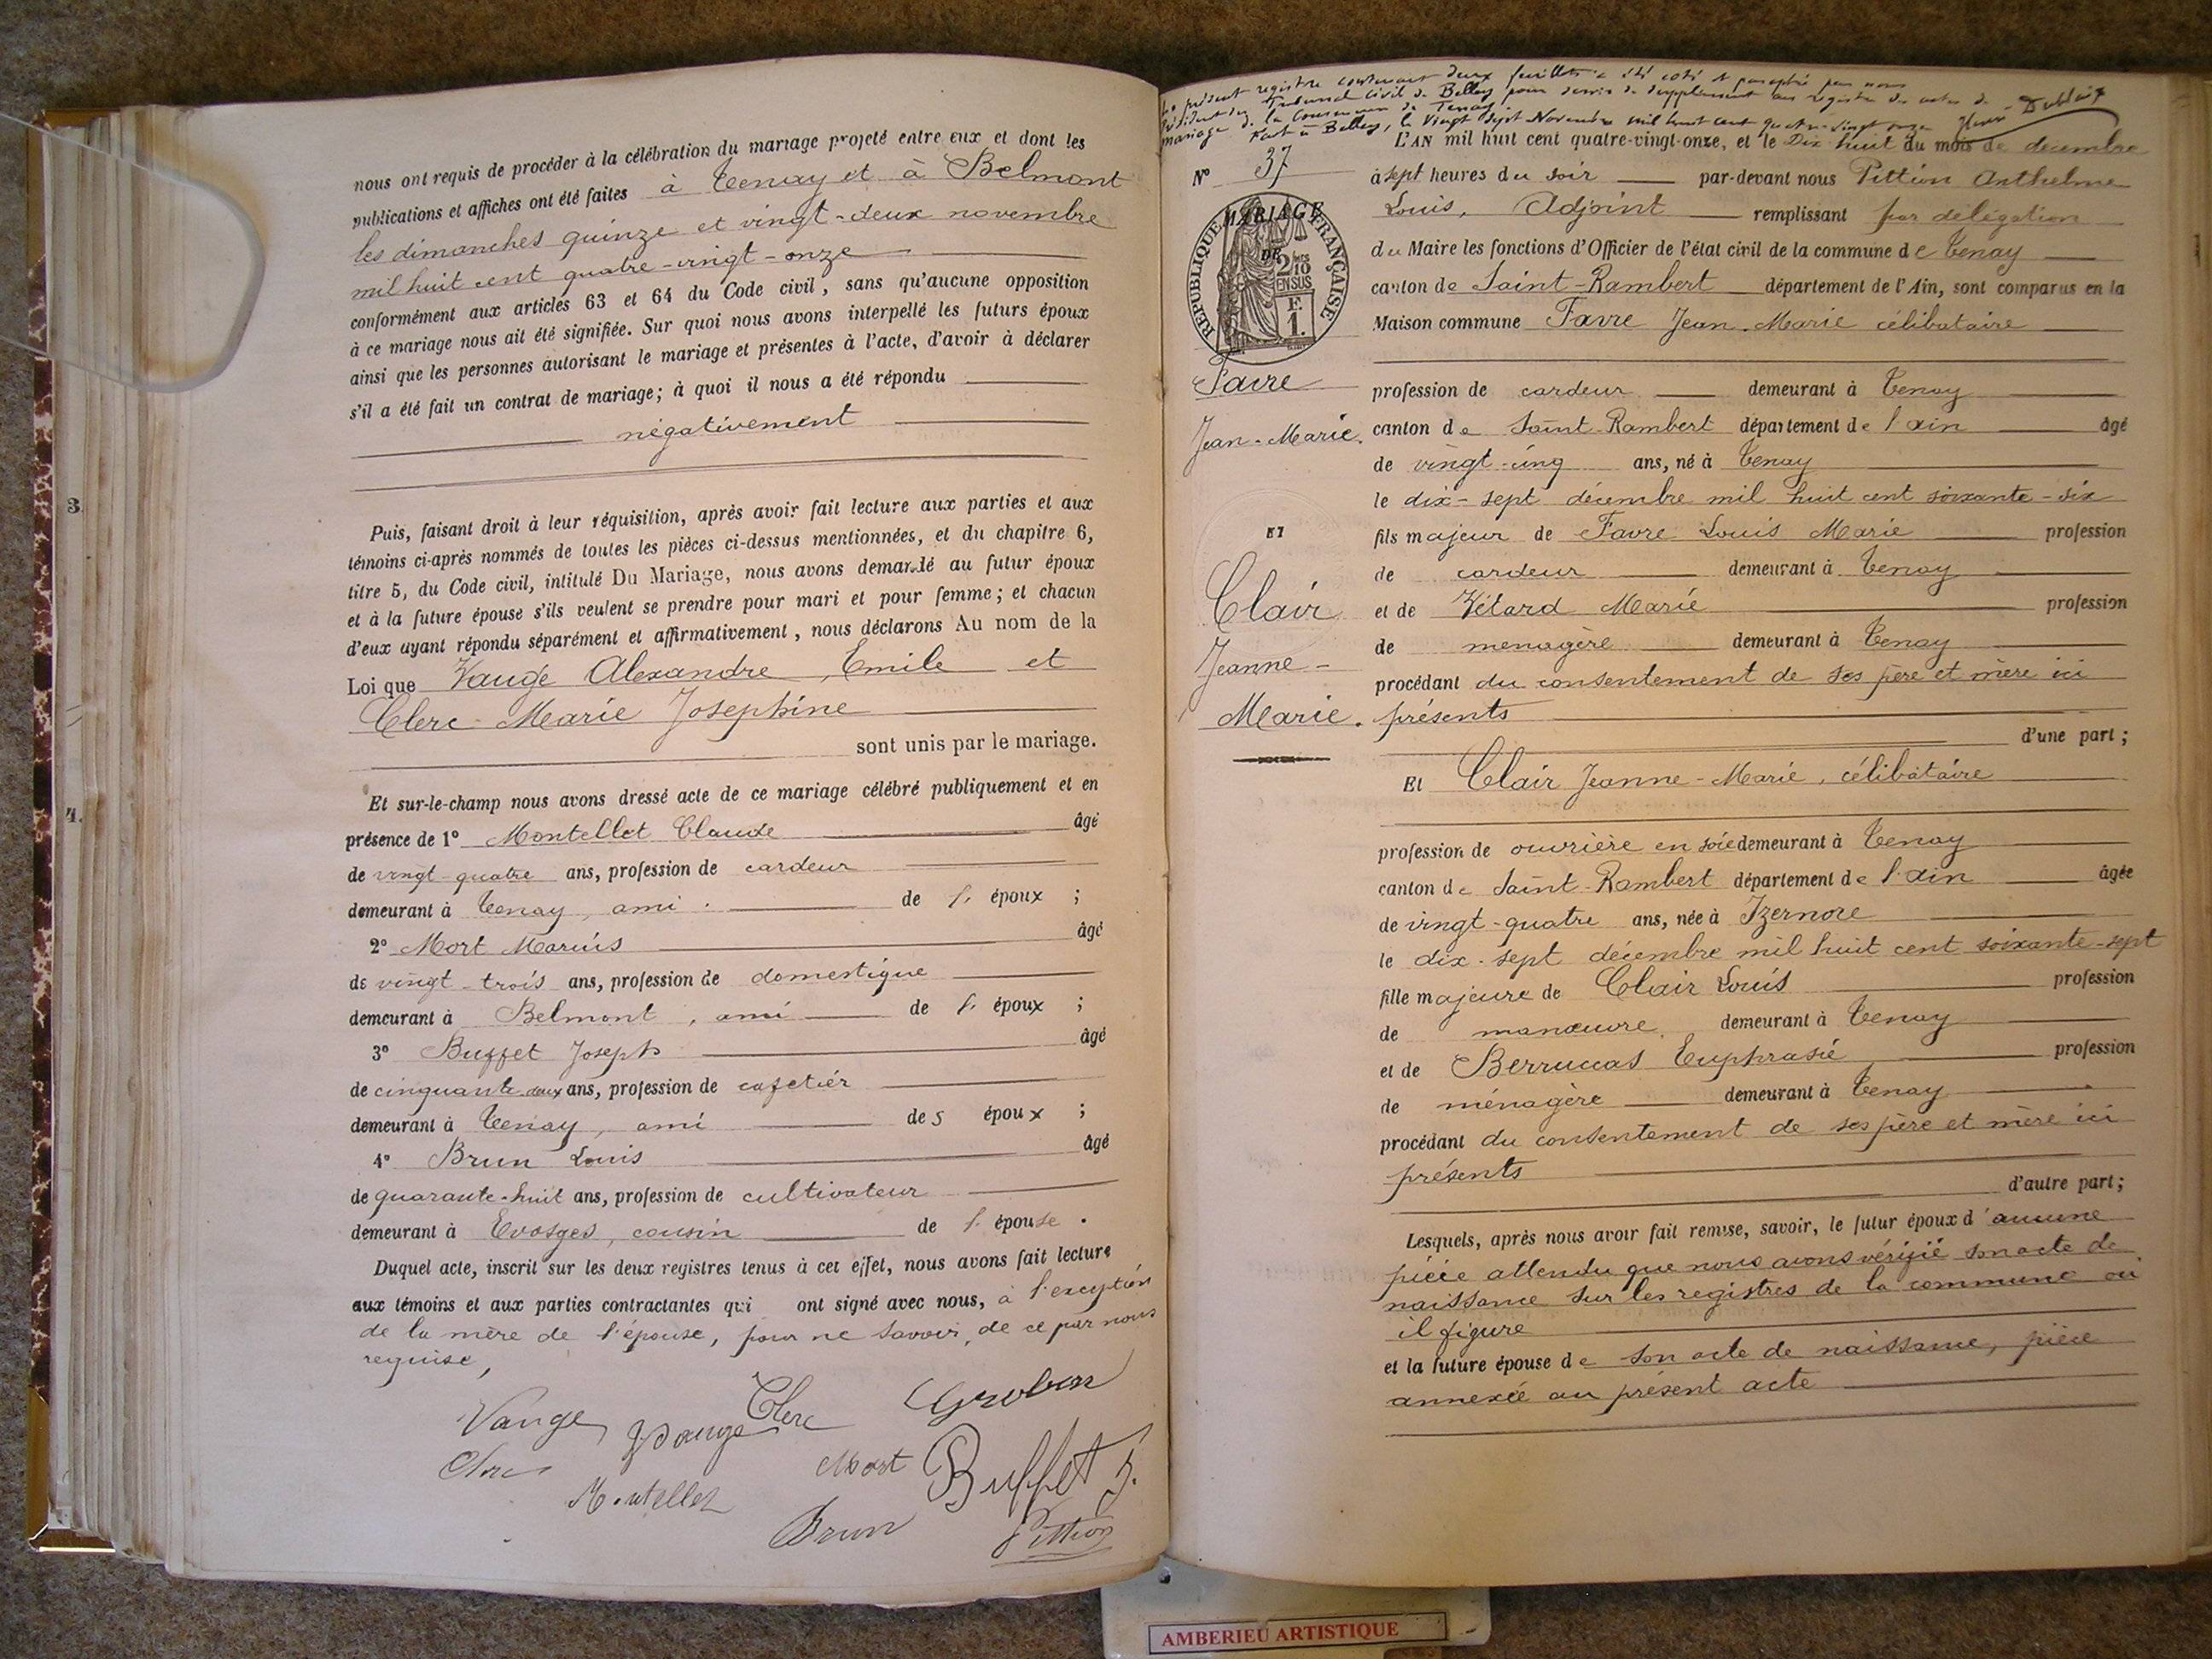 nous ont requis de procéder à la célébration du mariage projeté entre eux et dont les
publications et affiches ont été faites à Tenay et à Belmont
les dimanches quinze et vingt-deux novembre
mil huit cent quatre-vingt-onze
conformément aux articles 63 et 64 du Code civil, sans qu'aucune opposition
à ce mariage nous ait été signifiée. Sur quoi nous avons interpellé les futurs époux
ainsi que les personnes autorisant le mariage et présentes à l'acte, d'avoir à déclarer
s'il a été fait un contrat de mariage; à quoi il nous a été répondu
négativement
3.
Puis, faisant droit à leur réquisition, après avoir fait lecture aux parties et aux
témoins ci-après nommés de toutes les pièces ci-dessus mentionnées, et du chapitre 6,
titre 5, du Code civil, intitulé Du Mariage, nous avons demandé au futur époux
et à la future épouse s'ils veulent se prendre pour mari et pour femme; et chacun
d'eux ayant répondu séparément et affirmativement, nous déclarons Au nom de la
Loi que Vauge Alexandre, Emile et
Clerc Marie Josephine
sont unis par le mariage.
Et sur-le-champ nous avons dressé acte de ce mariage célébré publiquement et en
4.
présence de 1° Montellet Claude âgé
de vingt-quatre ans, profession de cardeur
demeurant à Tenay, ami de l' époux ;
2° Mort Marius âgé
de vingt-trois ans, profession de domestique
demeurant à Belmont, ami de l' époux ;
3° Buffet Joseph âgé
de cinquante-deux ans, profession de cafetier
demeurant à Tenay, ami de s époux ;
4° Brun Louis âgé
de quarante-huit ans, profession de cultivateur
demeurant à Evosges, cousin de l' épouse.
Duquel acte, inscrit sur les deux registres tenus à cet effet, nous avons fait lecture
aux témoins et aux parties contractantes qui ont signé avec nous, à l'exception
de la mère de l'épouse, pour ne savoir, de ce par nous
requise,
Vauge Vauge Clerc
Mort Buffet J.
Montellet
Brun Pittion
Le présent registre contenant deux feuillets a été coté et paraphé par nous
Président du Tribunal Civil de Belley pour servir de supplément au registre des actes de
mariage de la Commune de Tenay.
Fait à Belley, le Vingt sept Novembre mil huit cent quatre-vingt onze
L'AN mil huit cent quatre-vingt-onze, et le Dix huit du mois de decembre
N° 37
à sept heures du soir par-devant nous Pittion Anthelme
Louis, Adjoint remplissant par délégation
du Maire les fonctions d'Officier de l'état civil de la commune de Tenay
canton de Saint-Rambert département de l'Ain, sont comparus en la
Maison commune Favre Jean-Marie célibataire
MARIAGE
DE
REPUBLIQUE FRANÇAISE
2/10
EN SUS
F.
1.
Favre
Jean-Marie.
ET
Clair
Jeanne-
Marie.
profession de cardeur demeurant à Tenay
canton de Saint-Rambert département de l'ain âgé
de vingt-cinq ans, né à Tenay
le dix-sept décembre mil huit cent soixante-six
fils majeur de Favre Louis Marie profession
de cardeur demeurant à Tenay
et de Vétard Marie profession
de menagère demeurant à Tenay
procédant du consentement de ses père et mère ici
présents
d'une part;
Et Clair Jeanne-Marie, célibataire
profession de ouvrière en soie demeurant à Tenay
canton de Saint-Rambert département de l'ain âgée
de vingt-quatre ans, née à Izernore
le dix-sept décembre mil huit cent soixante-sept
fille majeure de Clair Louis profession
de manœuvre demeurant à Tenay
et de Berruccas Euphrasie profession
de ménagère demeurant à Tenay
procédant du consentement de ses père et mère ici
présents
d'autre part;
Lesquels, après nous avoir fait remise, savoir, le futur époux d'aucune
pièce attendu que nous avons vérifié son acte de
naissance sur les registres de la commune où
il figure
et la future épouse de son acte de naissance, pièce
annexée au présent acte
AMBERIEU ARTISTIQUE